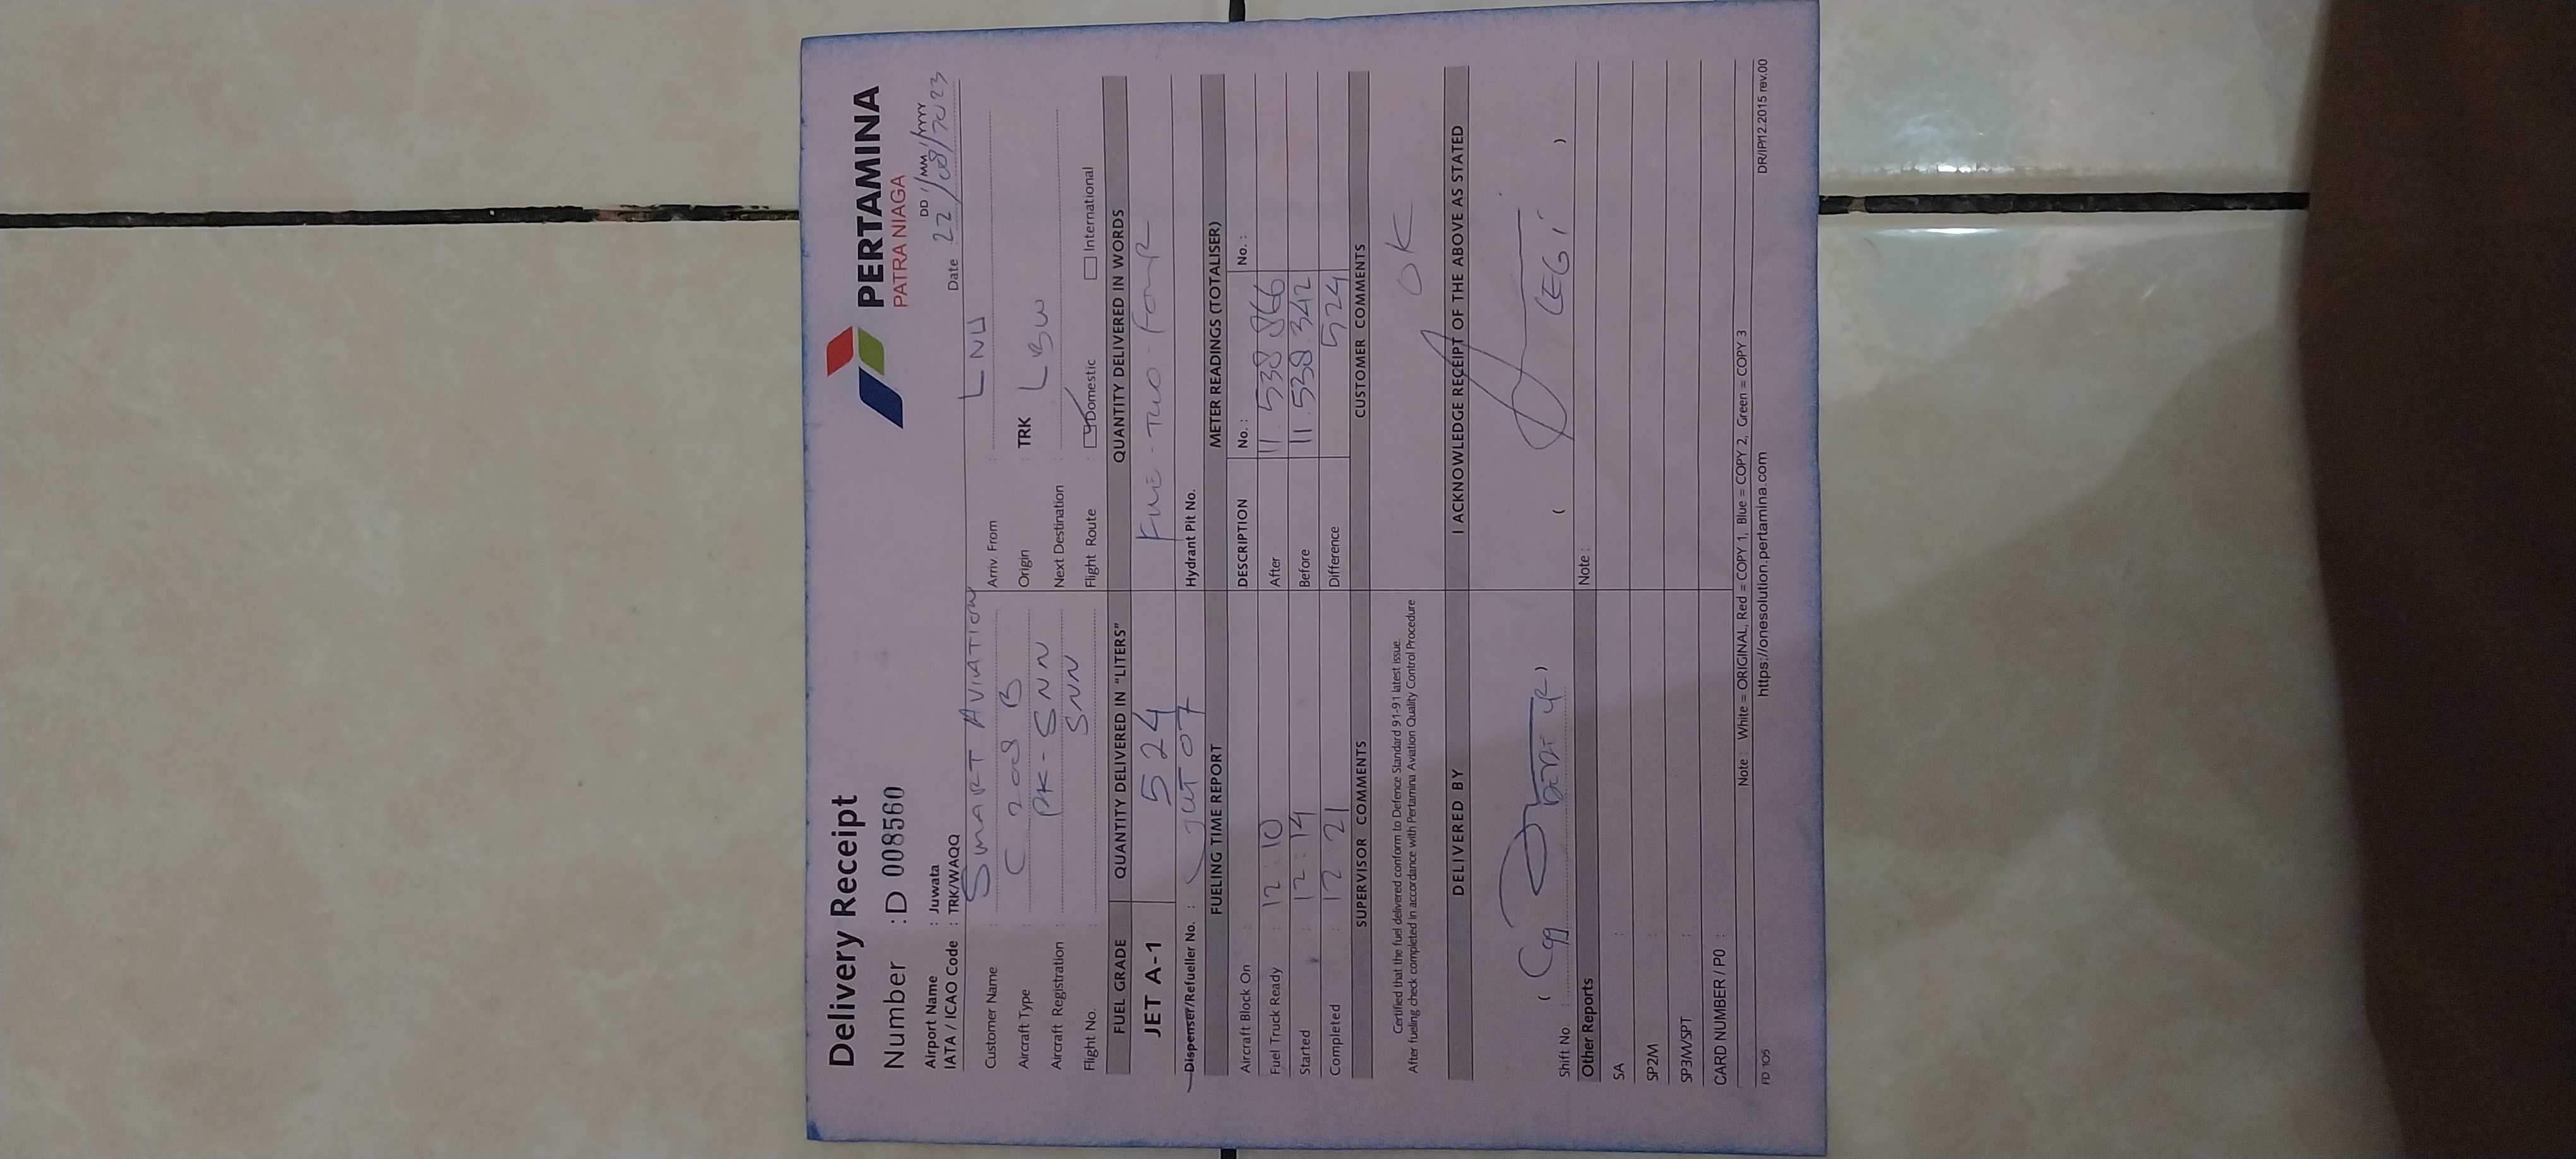 Delivery Receipt
PERTAMINA
PATRA NIAGA
Number : D 0008560
Airport Name : Juwata
IATA / ICAO Code : TRK/WAQQ
DD / MM / YYYY
Date 22/08/2023
Customer Name SMART AVIATION
Arriv. From : LNU
Aircraft Type : C 208 B
Origin : TRK
Aircraft Registration : PK-SNN
Next Destination : LBW
Flight No. : SNN
Flight Route : Domestic International
FUEL GRADE QUANTITY DELIVERED IN "LITERS" QUANTITY DELIVERED IN WORDS
JET A-1 524 FIVE - TWO - FOUR
Dispenser/Refueller No. : JUT 07 Hydrant Pit No.
FUELING TIME REPORT METER READINGS (TOTALISER)
Aircraft Block On : DESCRIPTION No. : No. :
Fuel Truck Ready : 12:10 After 11.538 866
Started : 12:14 Before 11.538 342
Completed : 12:21 Difference 524
SUPERVISOR COMMENTS CUSTOMER COMMENTS
Certified that the fuel delivered conform to Defence Standard 91-91 latest issue.
After fueling check completed in accordance with Pertamina Aviation Quality Control Procedure
OK
DELIVERED BY I ACKNOWLEDGE RECEIPT OF THE ABOVE AS STATED
Shift No. :
Other Reports Note :
SA :
SP2M :
SP3M/SPT :
CARD NUMBER / PO :
Note : White = ORIGINAL, Red = COPY 1, Blue = COPY 2, Green = COPY 3
FD 105 https://onesolution.pertamina.com DR/IP/12.2015 rev.00